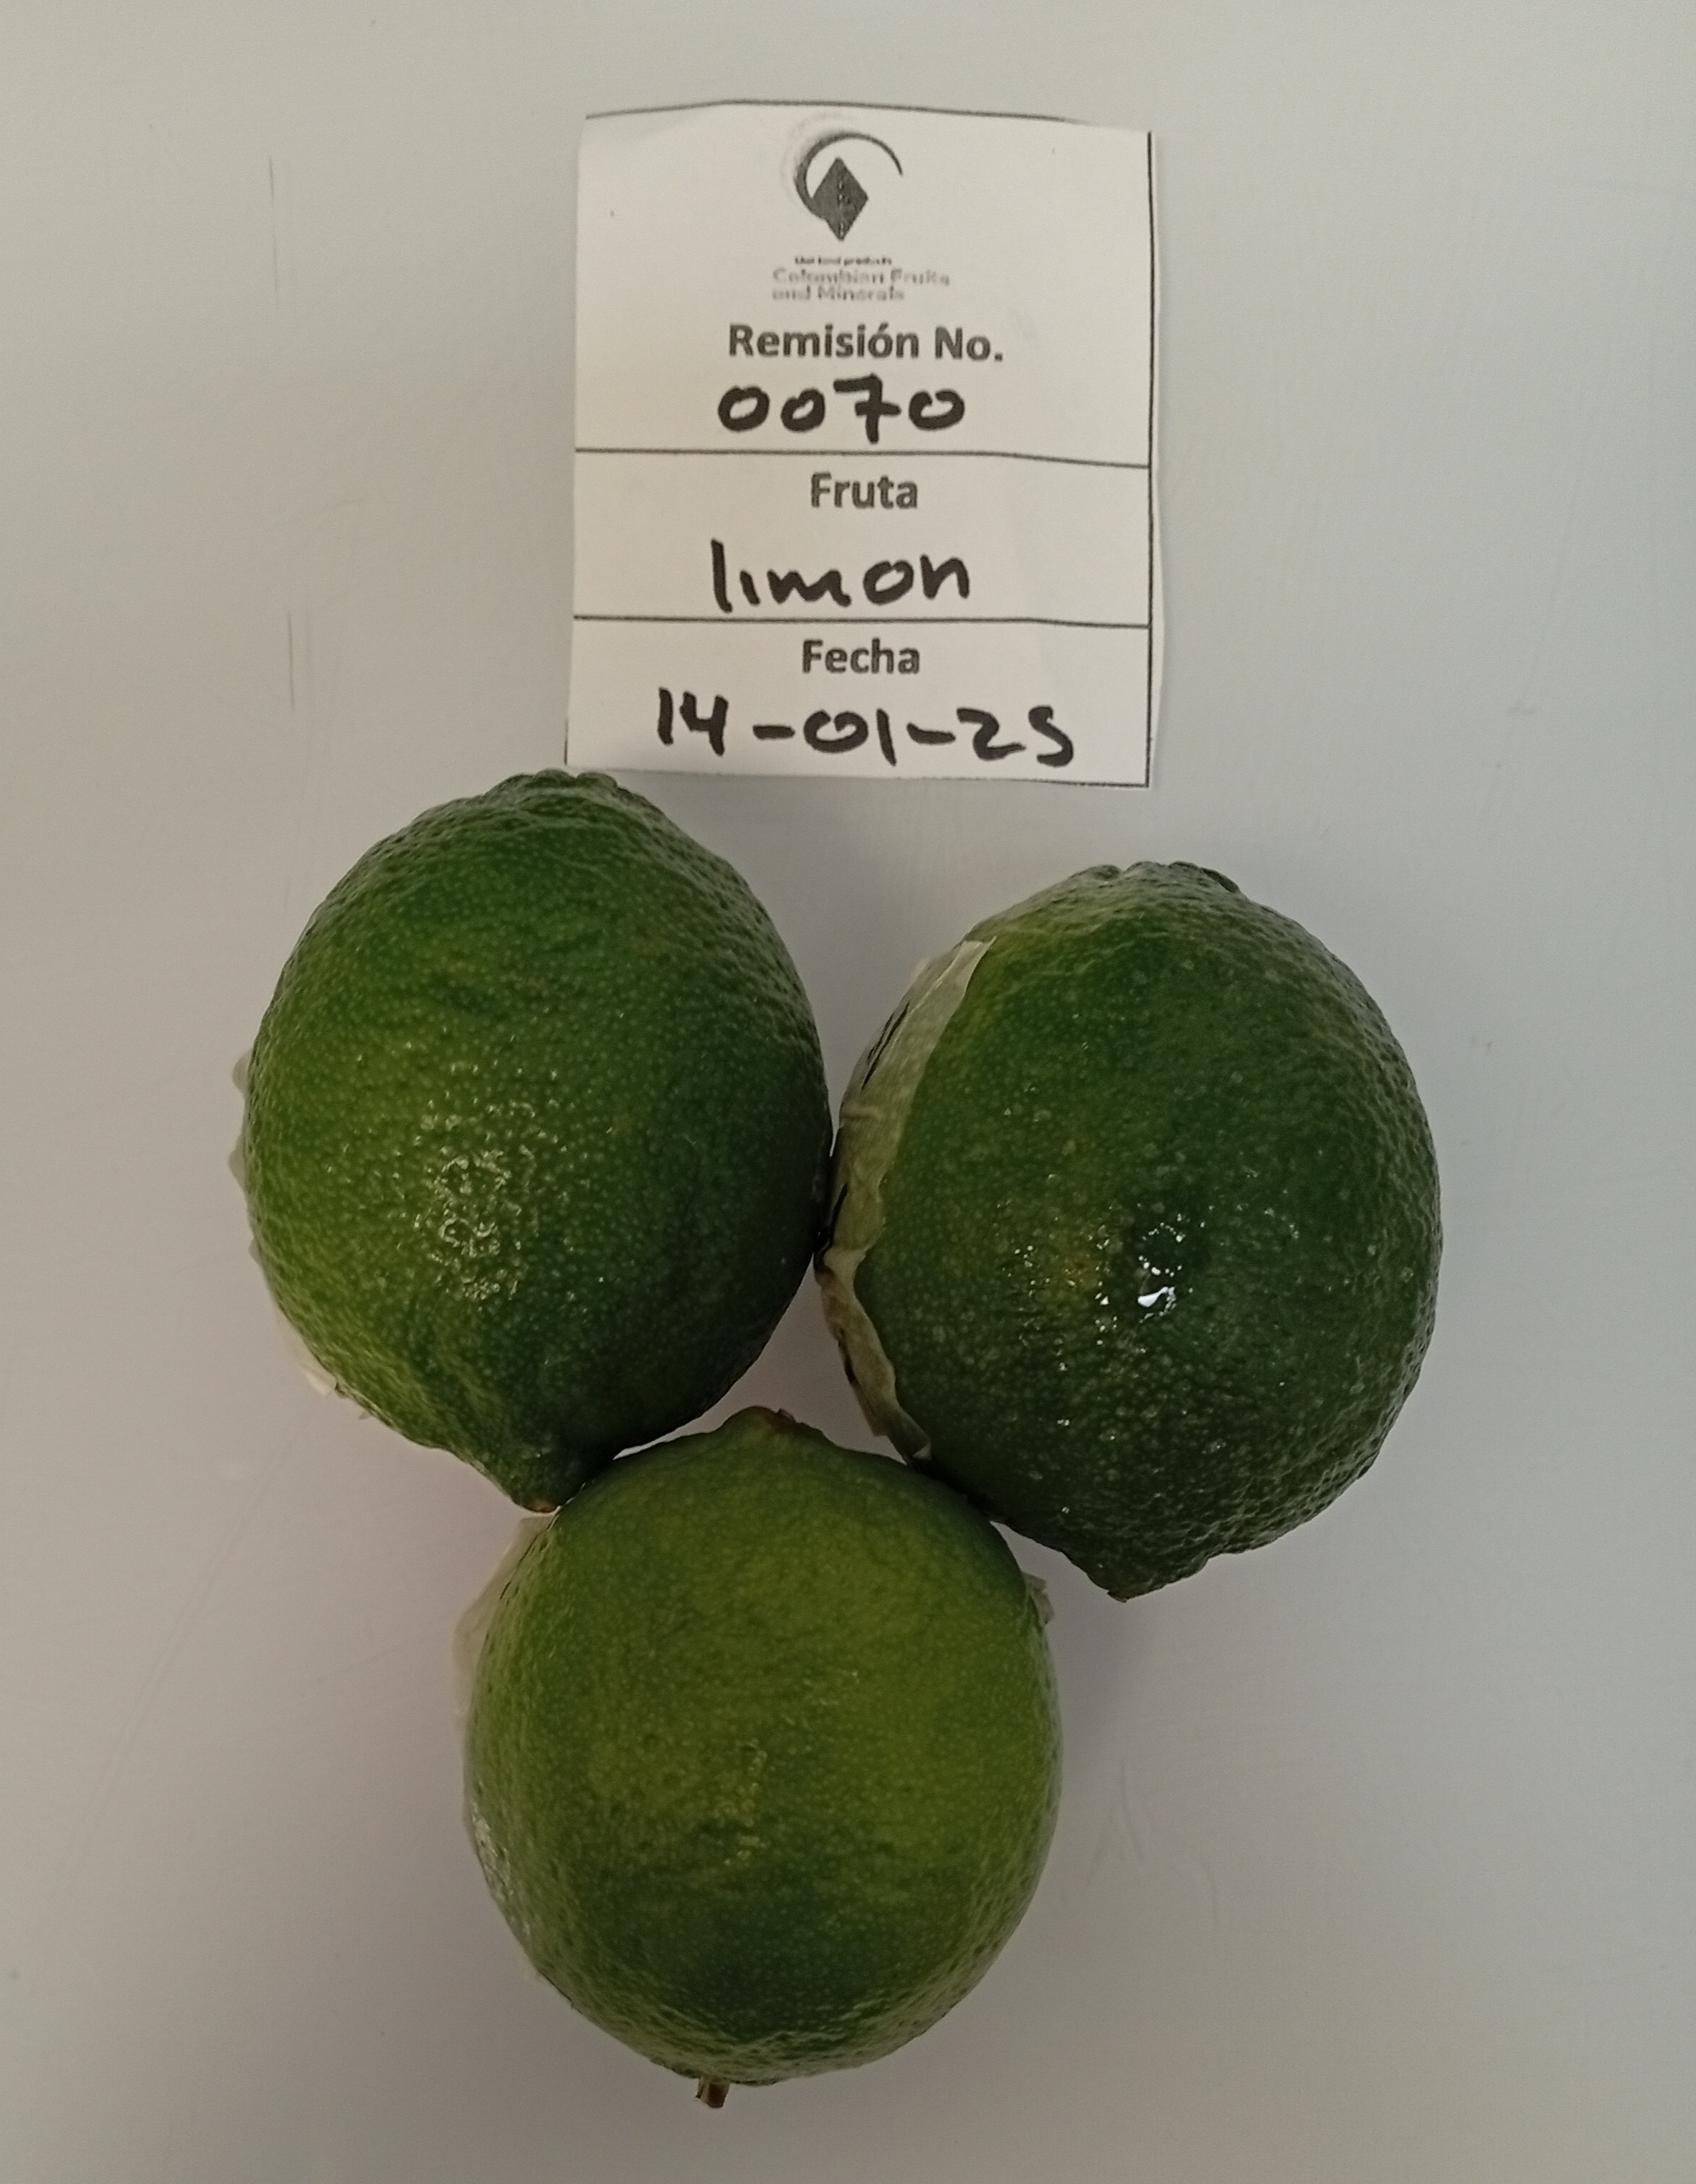 Colombian Fruits
and Minerals
Remisión No.
0070
Fruta
limon
Fecha
14-01-25